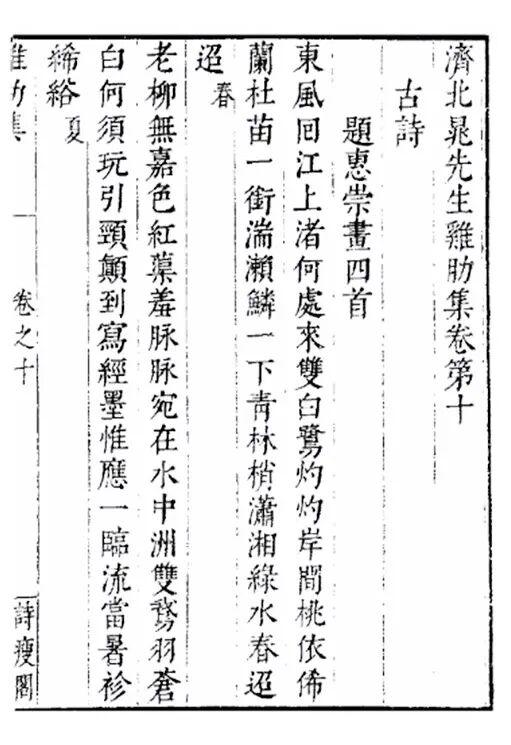 濟北晁先生雞肋集卷第十
古詩
題惠崇畫四首
東風回江上渚何處來雙白鷺灼灼岸間桃依俙
蘭杜苗一銜湍瀨鱗一下青林梢瀟湘綠水春迢
迢 春
老柳無嘉色紅蕖羞脉脉宛在水中洲雙鵞羽蒼
白何須玩引頸顛到寫經墨惟應一臨流當暑袗
絺綌 夏
雞肋集 卷之十 詩瘦閣